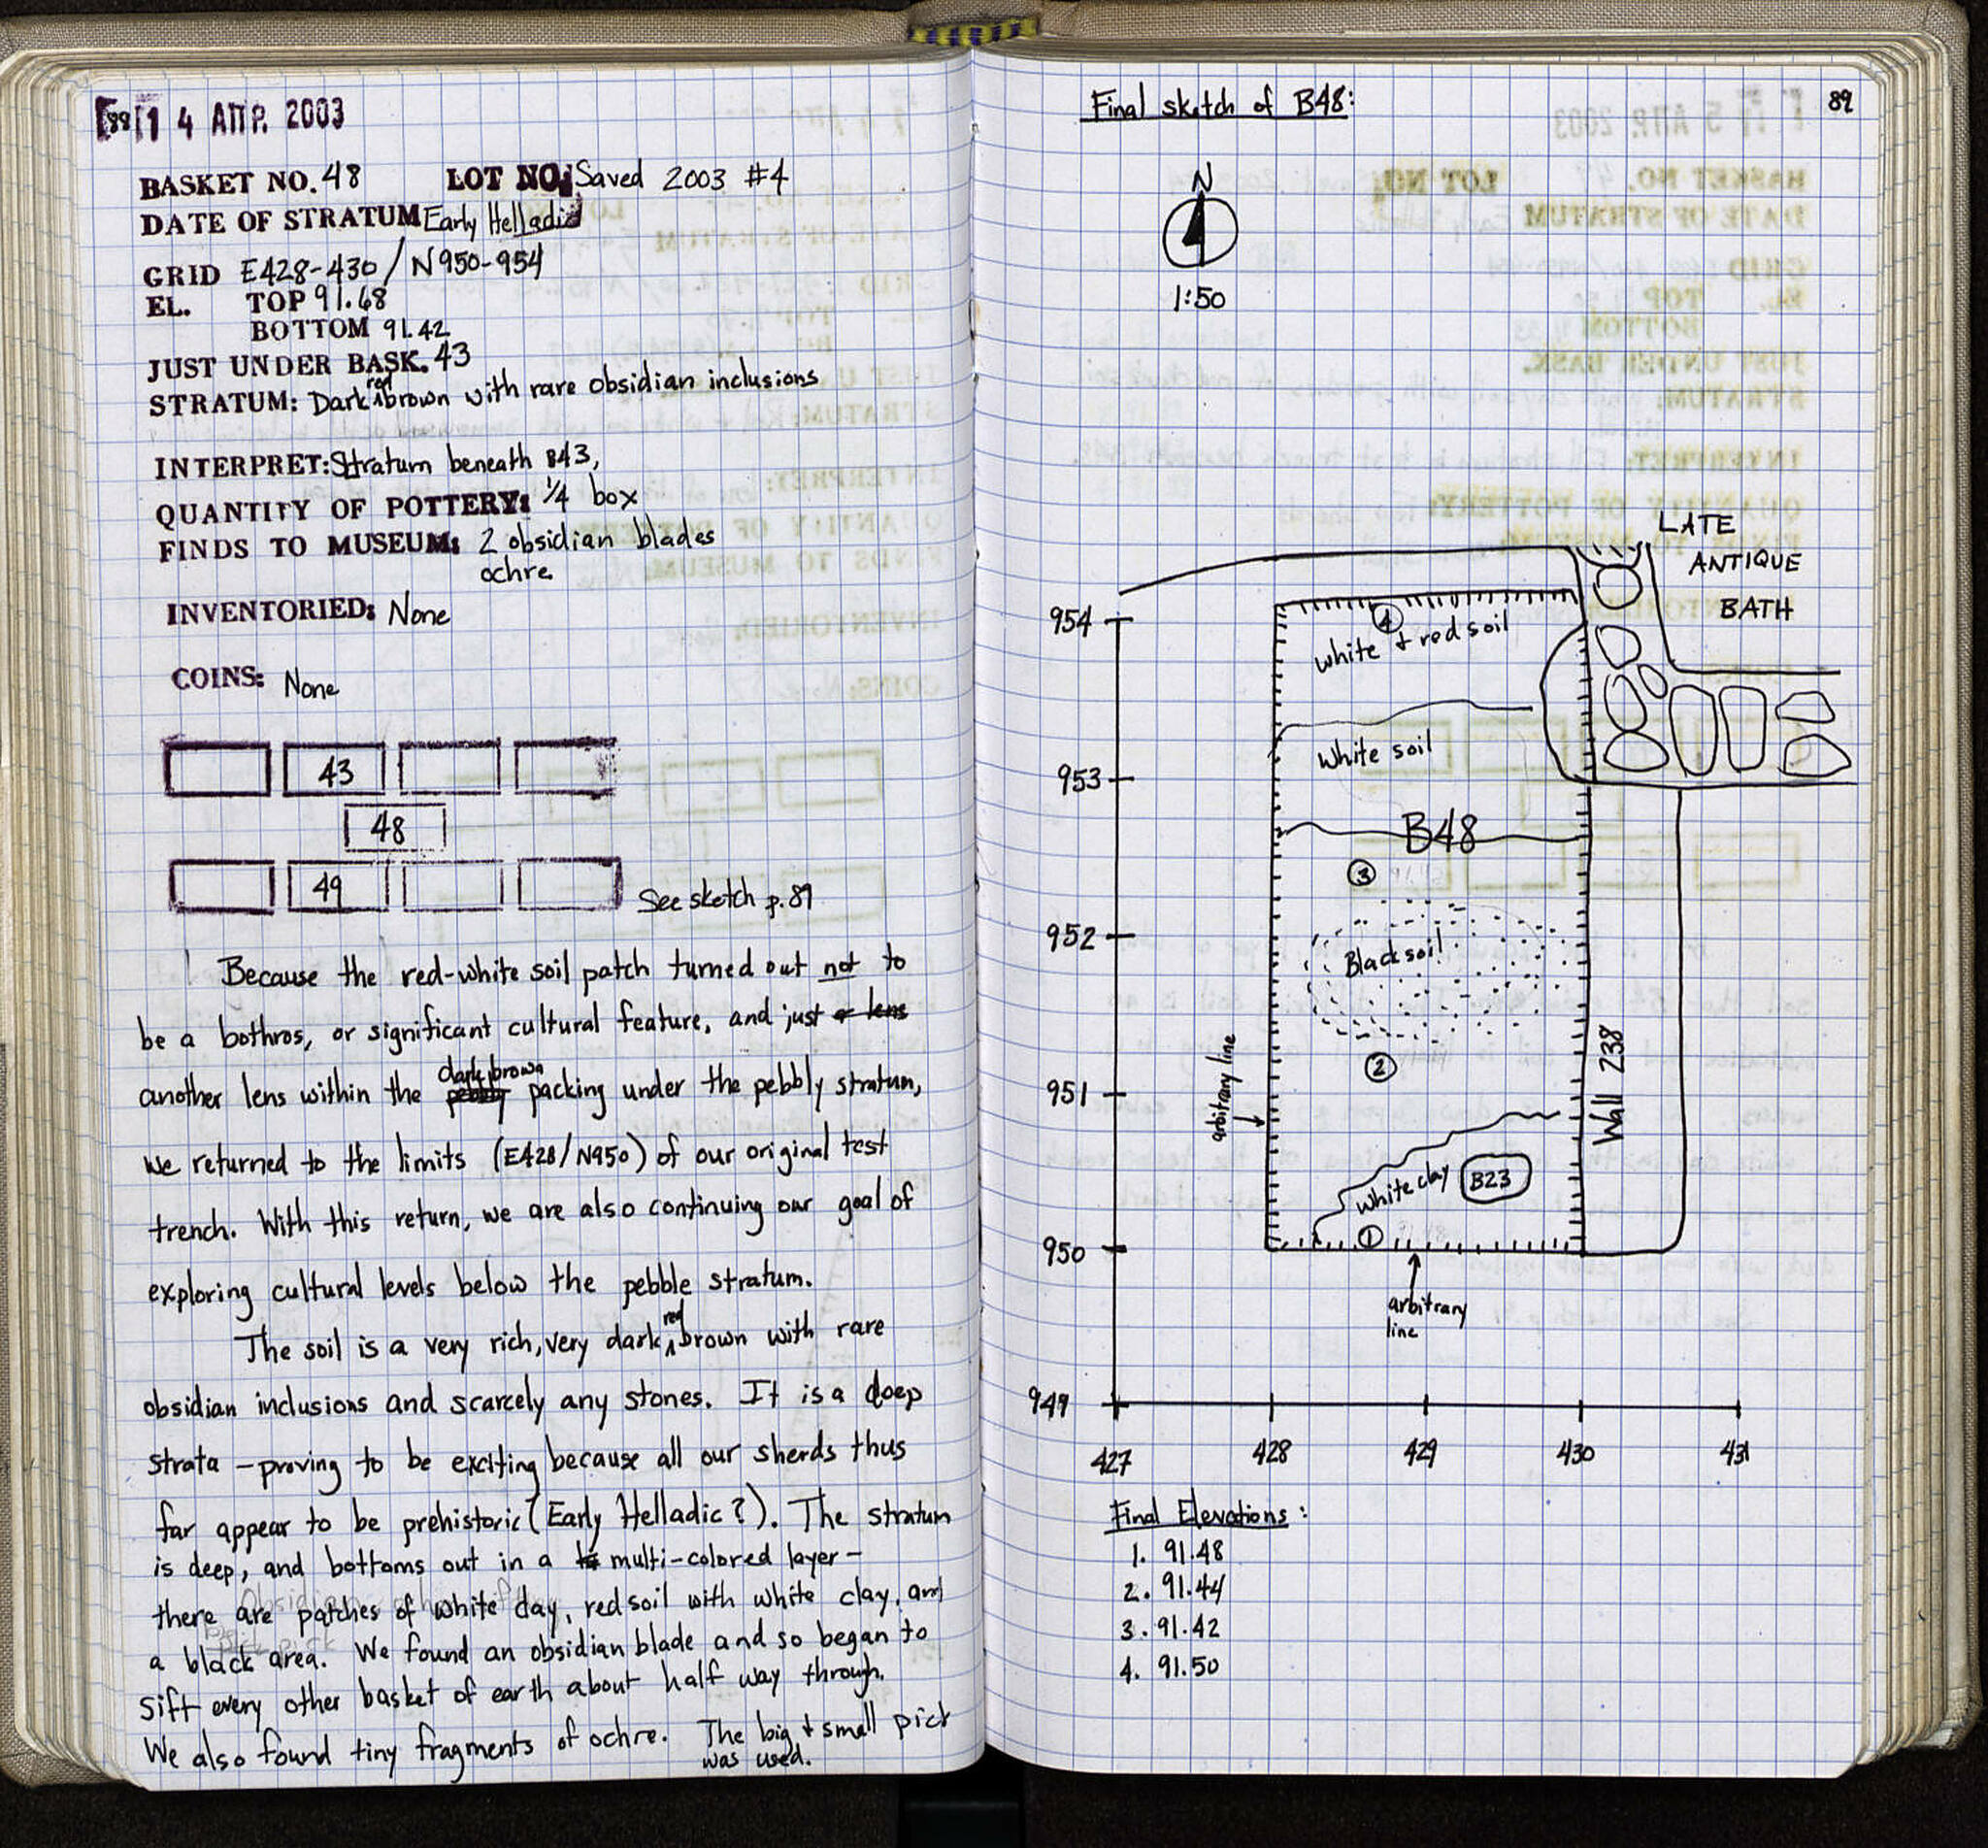 88
14 ΑΠΡ. 2003
BASKET NO. 48 LOT NO: Saved 2003 #4
DATE OF STRATUM Early Helladic
GRID E428-430/N950-954
EL. TOP 91.68
BOTTOM 91.42
JUST UNDER BASK. 43
STRATUM: Dark red brown with rare obsidian inclusions
INTERPRET: Stratum beneath B43,
QUANTITY OF POTTERY: 1/4 box
FINDS TO MUSEUM: 2 obsidian blades
ochre
INVENTORIED: None
COINS: None
43
48
49
See sketch p. 89
Because the red-white soil patch turned out not to
be a bothros, or significant cultural feature, and just or lens
another lens within the pebbly dark brown packing under the pebbly stratum,
we returned to the limits (E428/N950) of our original test
trench. With this return, we are also continuing our goal of
exploring cultural levels below the pebble stratum.
The soil is a very rich, very dark red brown with rare
obsidian inclusions and scarcely any stones. It is a deep
strata – proving to be exciting because all our sherds thus
far appear to be prehistoric (Early Helladic?). The stratum
is deep, and bottoms out in a multi-colored layer –
there are patches of white clay, red soil with white clay, and
a black area. We found an obsidian blade and so began to
sift every other basket of earth about half way through.
We also found tiny fragments of ochre. The big + small pick
was used.
Final sketch of B48:
89
N
1:50
LATE
ANTIQUE
BATH
954
4
white + red soil
white soil
953
B48
3
952
Black soil
2
951
arbitrary line
Wall 238
white clay B23
1
950
arbitrary
line
949
427 428 429 430 431
Final Elevations:
1. 91.48
2. 91.44
3. 91.42
4. 91.50